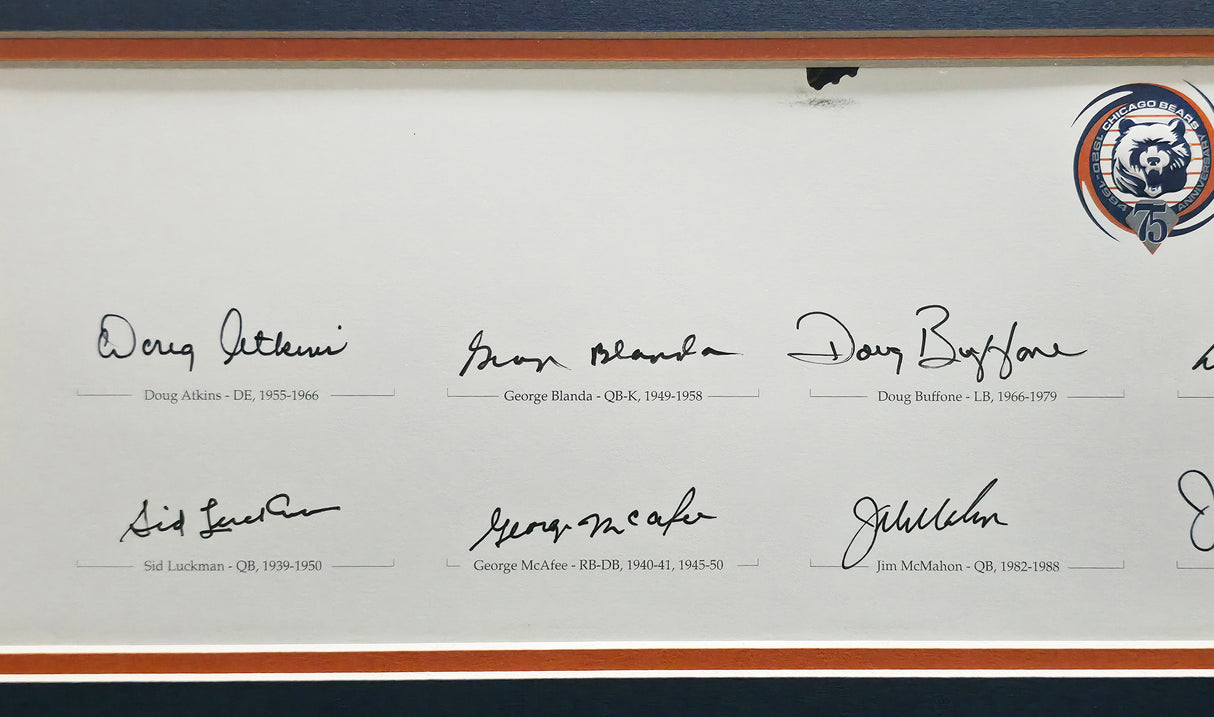 CHICAGO BEARS
1920-1994
ANNIVERSARY
75
Doug Atkins
George Blanda
Doug Buffone
Doug Atkins - DE, 1955-1966
George Blanda - QB-K, 1949-1958
Doug Buffone - LB, 1966-1979
Sid Luckman
George McAfee
Jim McMahon
Sid Luckman - QB, 1939-1950
George McAfee - RB-DB, 1940-41, 1945-50
Jim McMahon - QB, 1982-1988